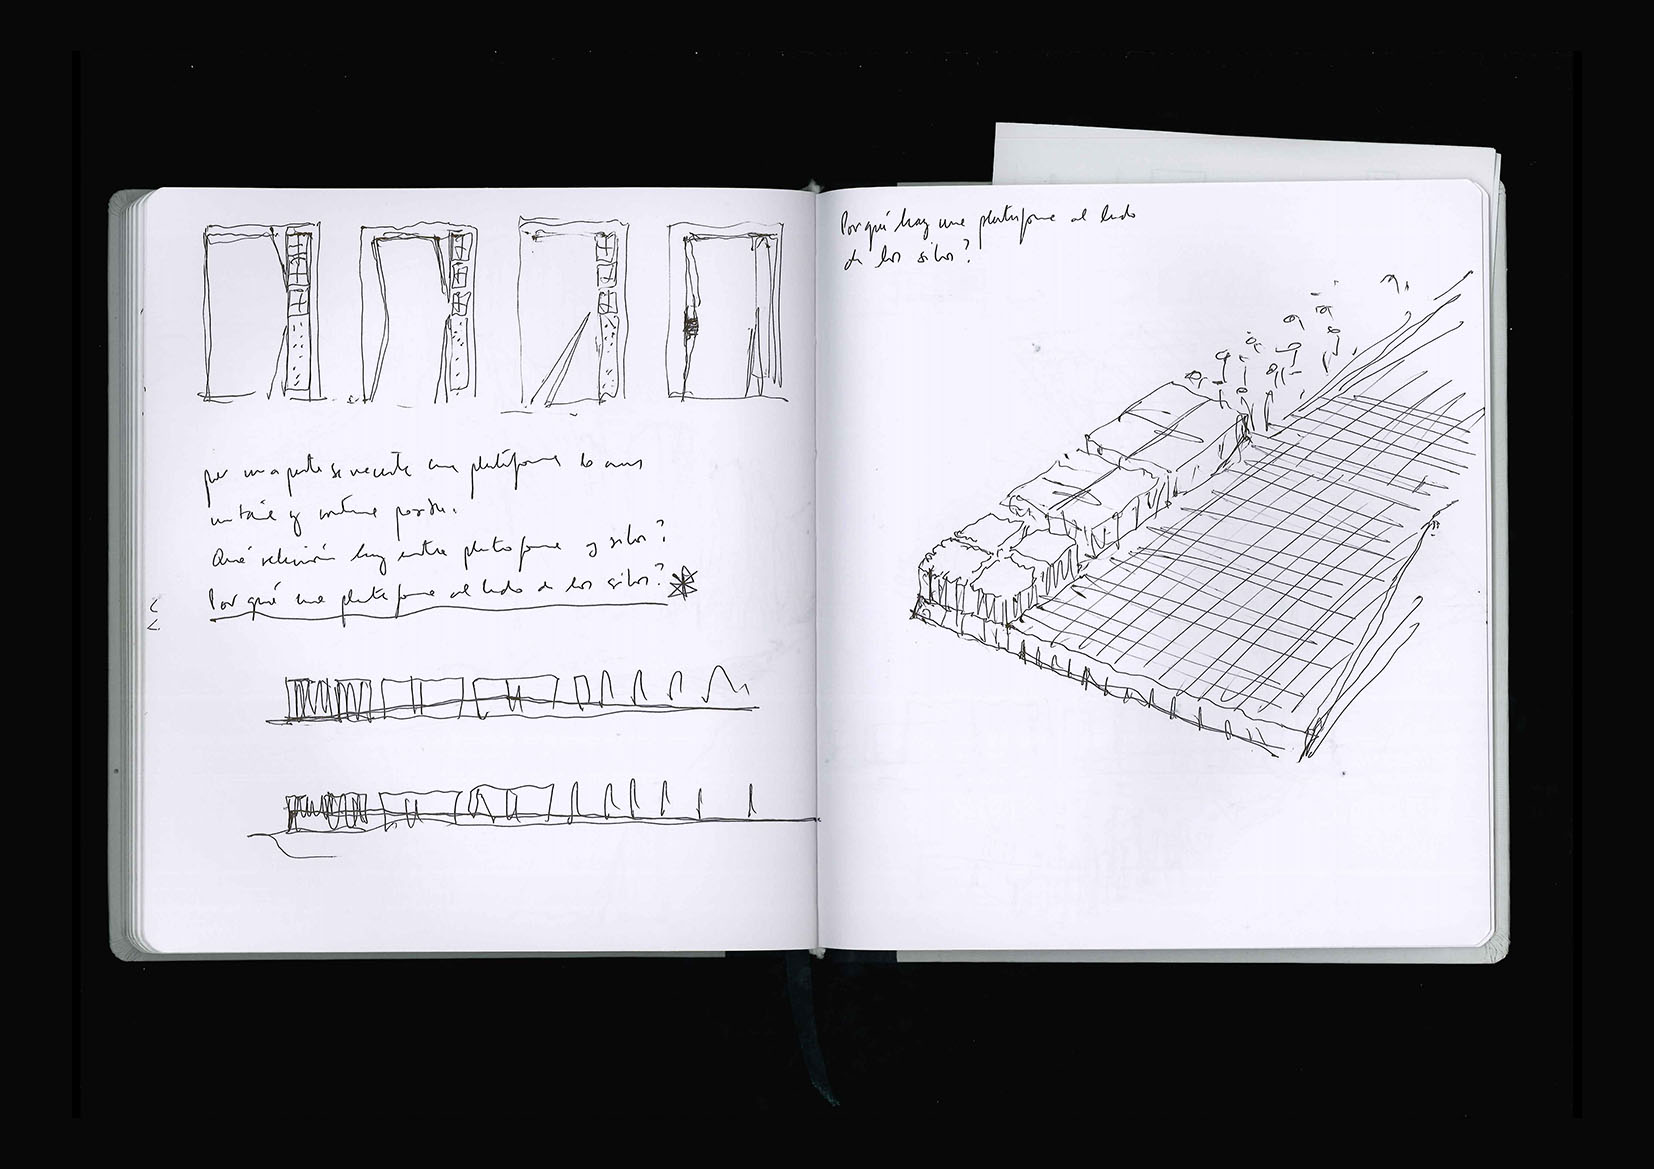 por una parte se necesita una plataforma lo mas
unitaria y continua posible.
Qué relación hay entre plataforma y silos?
Por qué una plataforma al lado de los silos?
Por qué hay una plataforma al lado
de los silos?